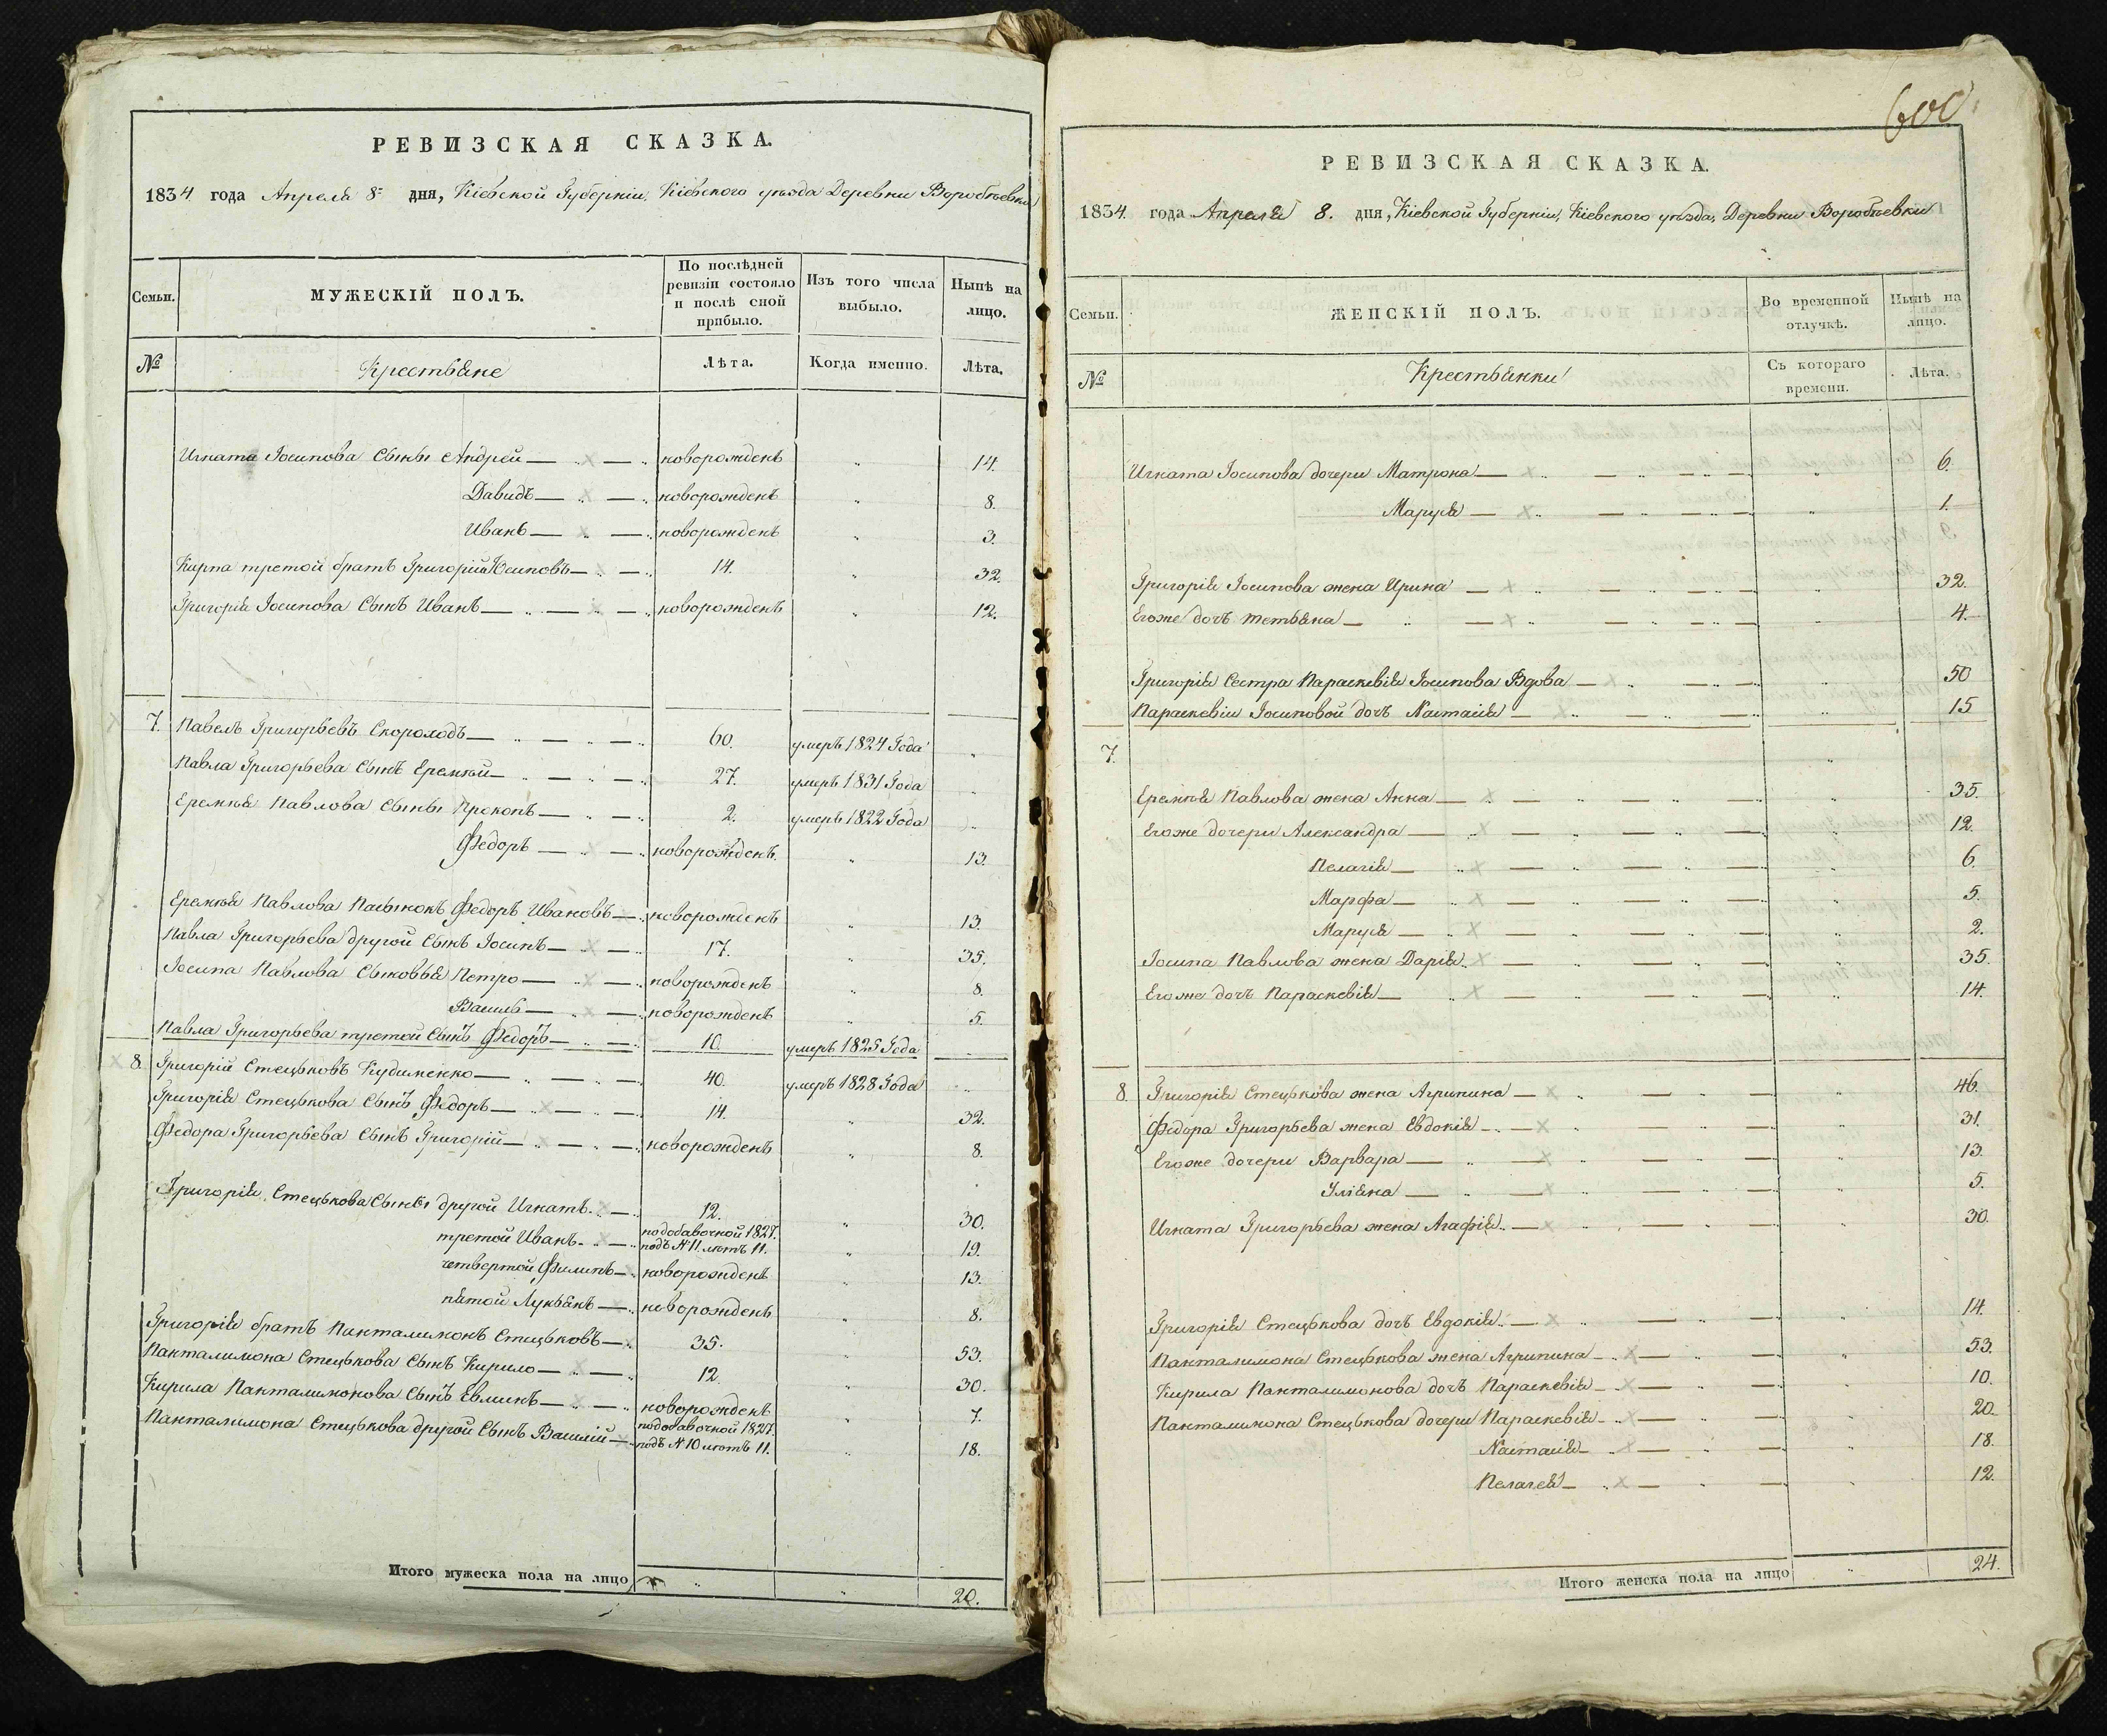 РЕВИЗСКАЯ СКАЗКА.
1834 года Апреля 8 дня, Кіевской Губерніи, Кіевского уѣзда Деревни Воробѣевки
Семьи. МУЖЕСКІЙ ПОЛЪ. По послѣдней ревизіи состояло и послѣ сной прибыло. Изъ того числа выбыло. Нынѣ на лицо.
№ Крестьяне Лѣта. Когда именно. Лѣта.
Игната Іосипова Сыны Андрей новорожденъ 14.
Давидъ новорожденъ 8.
Иванъ новорожденъ 3.
Кирпа третой братъ Григорій Юсиповъ 14. 32.
Григорія Іосипова Сынъ Иванъ новорожденъ 12.
7. Павелъ Григорьевъ Скороходъ 60. умеръ 1824 Года
Павла Григорьева Сынъ Еремѣй 27. умеръ 1831 Года
Еремѣя Павлова Сыны Прокопъ 2. умеръ 1822 Года
Федоръ новорожденъ 13.
Еремѣя Павлова Пасынокъ Федоръ Ивановъ новорожденъ 13.
Павла Григорьева другой Сынъ Іосипъ 17. 35.
Іосипа Павлова Сыновья Петро новорожденъ 8.
Василь новорожденъ 5.
Павла Григорьева третой Сынъ Федоръ 10. умеръ 1825 Года
8. Григорій Стецьковъ Кудименко 40. умеръ 1828 Года
Григорія Стецькова Сынъ Федоръ 14. 32.
Федора Григорьева Сынъ Григорій новорожденъ 8.
Григорія Стецькова Сыны другой Игнатъ 12. 30.
третой Иванъ подобавочной 1827. подъ № 11 лѣтъ 11. 19.
четвертой Филипъ новорожденъ 13.
пятой Лукьянъ новорожденъ 8.
Григорія братъ Панталимонъ Стецьковъ 35. 53.
Панталимона Стецькова Сынъ Кирило 12. 30.
Кирила Панталимонова Сынъ Евминъ новорожденъ 7.
Панталимона Стецькова другой Сынъ Василій подобавочной 1827. подъ № 10 лѣтъ 11. 18.
Итого мужеска пола на лицо 20.
600.
РЕВИЗСКАЯ СКАЗКА.
1834. года Апреля 8. дня, Кіевской Губерніи, Кіевского уѣзда, Деревни Воробѣевки
Семьи. ЖЕНСКІЙ ПОЛЪ. Во временной отлучкѣ. Нынѣ на лицо.
№ Крестьянки Съ котораго времени. Лѣта.
Игната Іосипова дочери Матрона 6.
Маруся 1.
Григорія Іосипова жена Ирина 32.
Егоже дочъ Тетьяна 4.
Григорія Сестра Параскевія Іосипова Вдова 50
Параскевіи Іосиповой дочъ Настасія 15
7.
Еремѣя Павлова жена Анна 35.
Егоже дочери Александра 12.
Пелагія 6.
Марфа 5.
Маруся 2.
Іосипа Павлова жена Дарія 35.
Егоже дочъ Параскевія 14.
8. Григорія Стецькова жена Агрипина 46.
Федора Григорьева жена Евдокія 31.
Егоже дочери Варвара 13.
Уліяна 5.
Игната Григорьева жена Агафія 30.
Григорія Стецькова дочъ Евдокія 14.
Панталимона Стецькова жена Агрипина 53.
Кирила Панталимонова дочъ Параскевія 10.
Панталимона Стецькова дочери Параскевія 20.
Настасія 18.
Пелагея 12.
Итого женска пола на лицо 24.